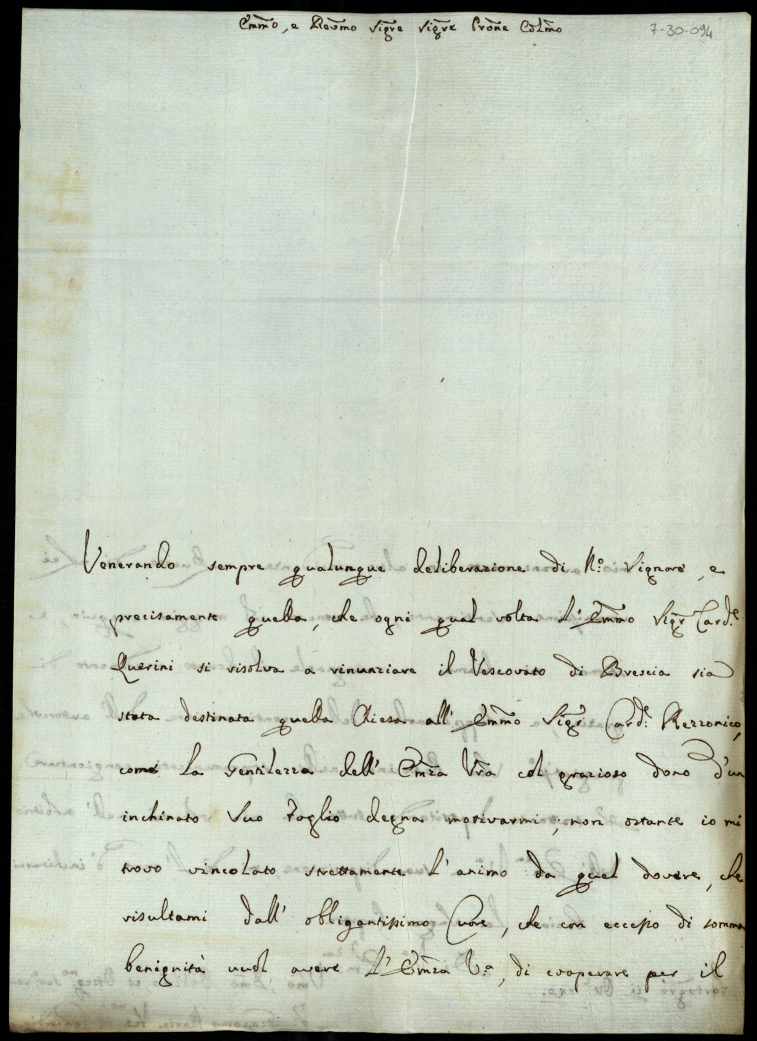 Emmo, e Revmo Sigre Sigre Prone Colmo
7-30-094
Venerando sempre qualunque deliberazione di N.o Signore, e
precisamente quella, che ogni qual volta l'Emmo Sigr Card.e
Querini si risolva a rinunziare il Vescovato di Brescia sia
stata destinata quella Chiesa all'Emmo Sigr Card.e Rezzonico,
come la Gentilezza dell'Emza Vra col grazioso dono d'un
inchinato Suo Foglio degna motivarmi; non ostante io mi
trovo vincolato strettamente l'animo da quel dovere, che
risultami dall'obligantissimo Cuore, che con eccesso di somma
benignità vuol avere l'Emza V.a, di cooperare per il